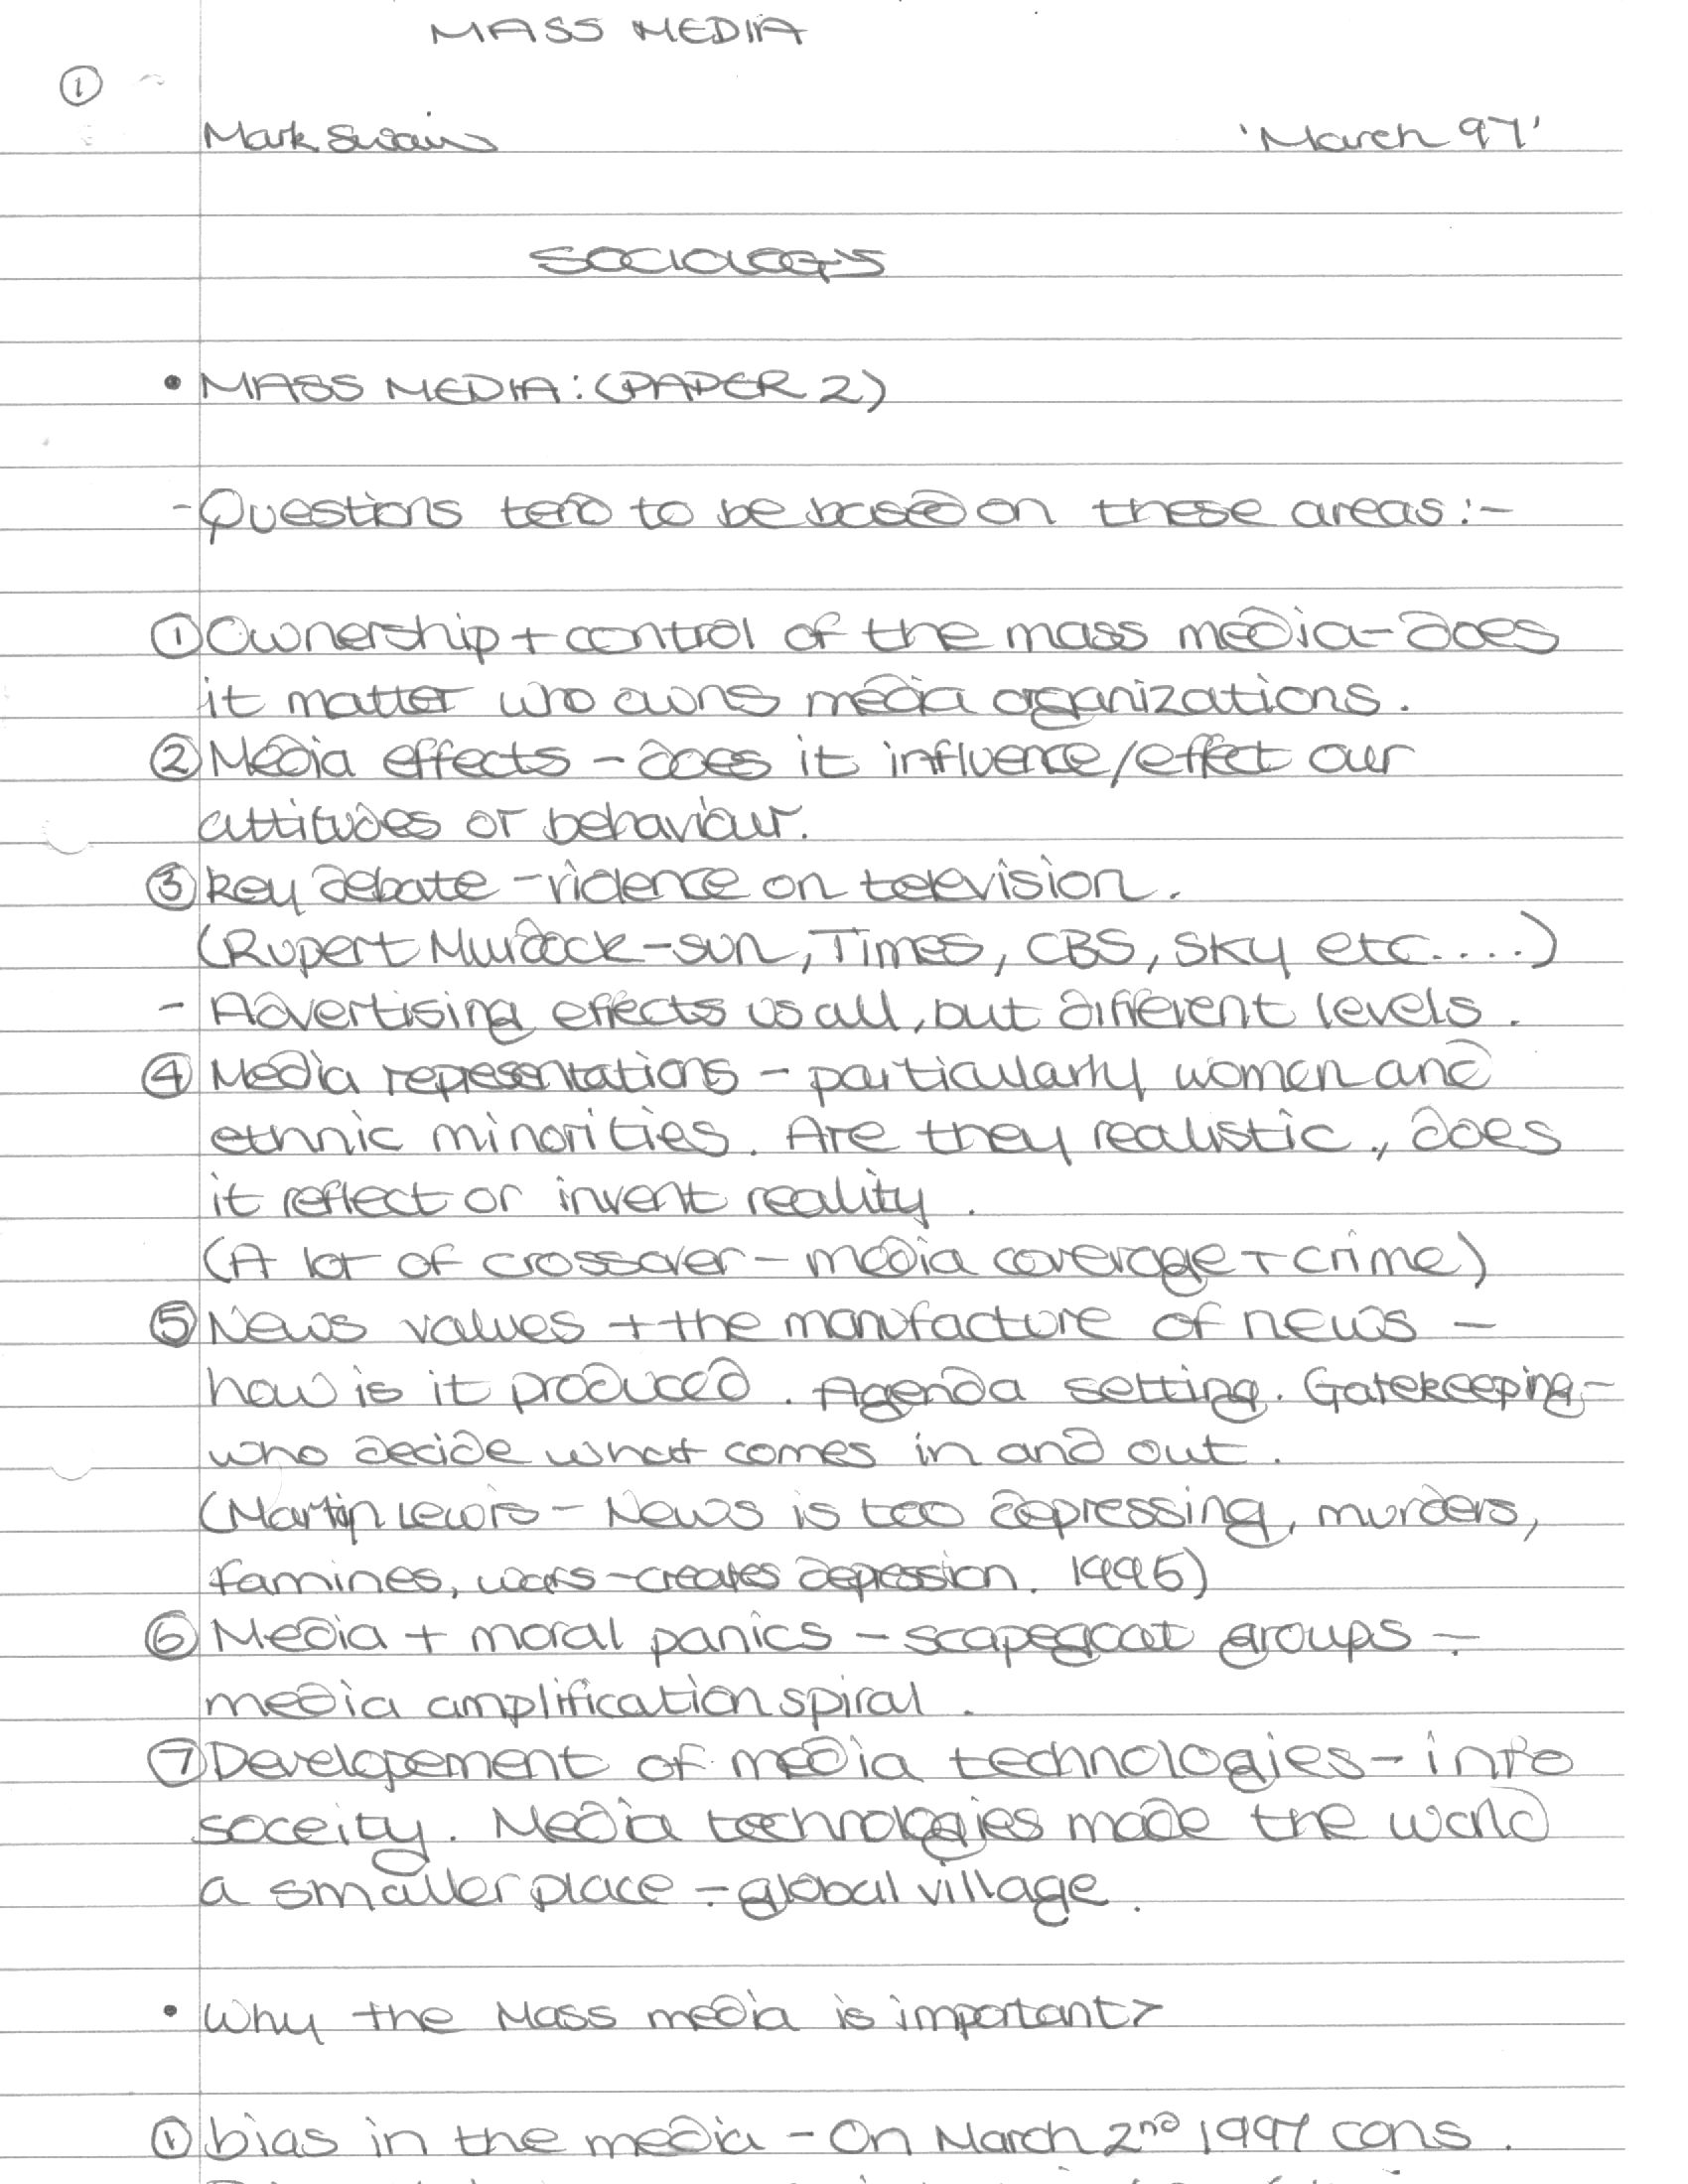 MASS MEDIA
①
Mark Swain 'March 97'
SOCIOLOGY
• MASS MEDIA: (PAPER 2)
- Questions tend to be based on these areas:-
① Ownership + control of the mass media - does
it matter who owns media organizations.
② Media effects - does it influence/effect our
attitudes or behaviour.
③ Key debate - violence on television.
(Rupert Murdock - Sun, Times, CBS, Sky etc....)
- Advertising effects us all, but different levels.
④ Media representations - particularly women and
ethnic minorities. Are they realistic, does
it reflect or invent reality.
(A lot of crossover - media coverage + crime)
⑤ News values + the manufacture of news -
how is it produced. Agenda setting. Gatekeeping -
who decide what comes in and out.
(Martin Lewis - News is too depressing, murders,
famines, wars - creates depression. 1995)
⑥ Media + moral panics - scapegoat groups -
media amplification spiral.
⑦ Developement of media technologies - info
soceity. Media technologies made the world
a smaller place - global village.
• Why the Mass media is important?
① bias in the media - On March 2nd 1997 cons.